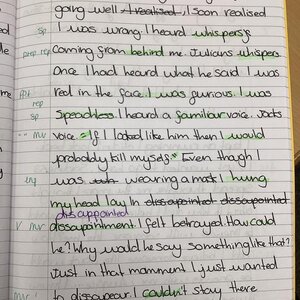 going well I realised , I soon realised
sp I was wrong I heard whispers
prep rep Coming from behind me. Julians whispers
Once I had heard what he said I was
red in the face. I was furious. I was
rep
sp Speachless I heard a familiar voice. Jacks
mv voice. "If I looked like him then I would
probably kill myself." Even though I
was wearing a mask I hung
my head lay In dissapointed dissapointed
disappointed
V mv dissapointment I felt betrayed. How could
he? Why would he say something like that?
Just in that momment I just wanted
mv to dissapear. I couldn't stay there